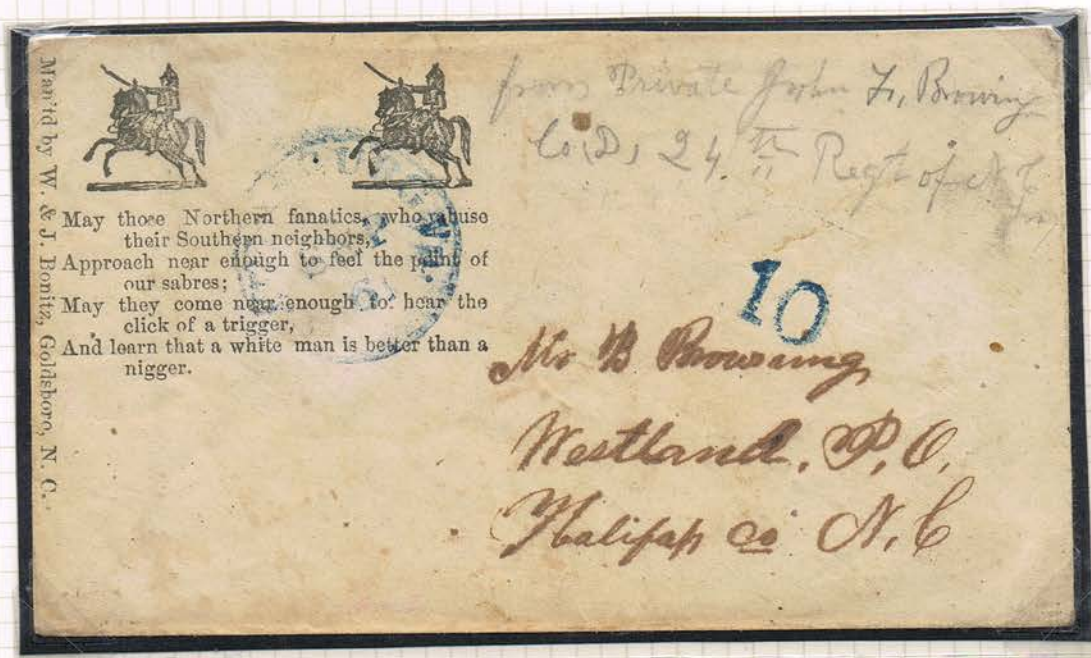 Man'fd by W. & J. Bonitz, Goldsboro, N. C.
May those Northern fanatics, who abuse
their Southern neighbors,
Approach near enough to feel the point of
our sabres;
May they come near enough to hear the
click of a trigger,
And learn that a white man is better than a
nigger.
from Private John F, Browning
Co, D, 24.th Regt of N
10
Mr B Browning
Westland, P, O,
Halifax co N, C